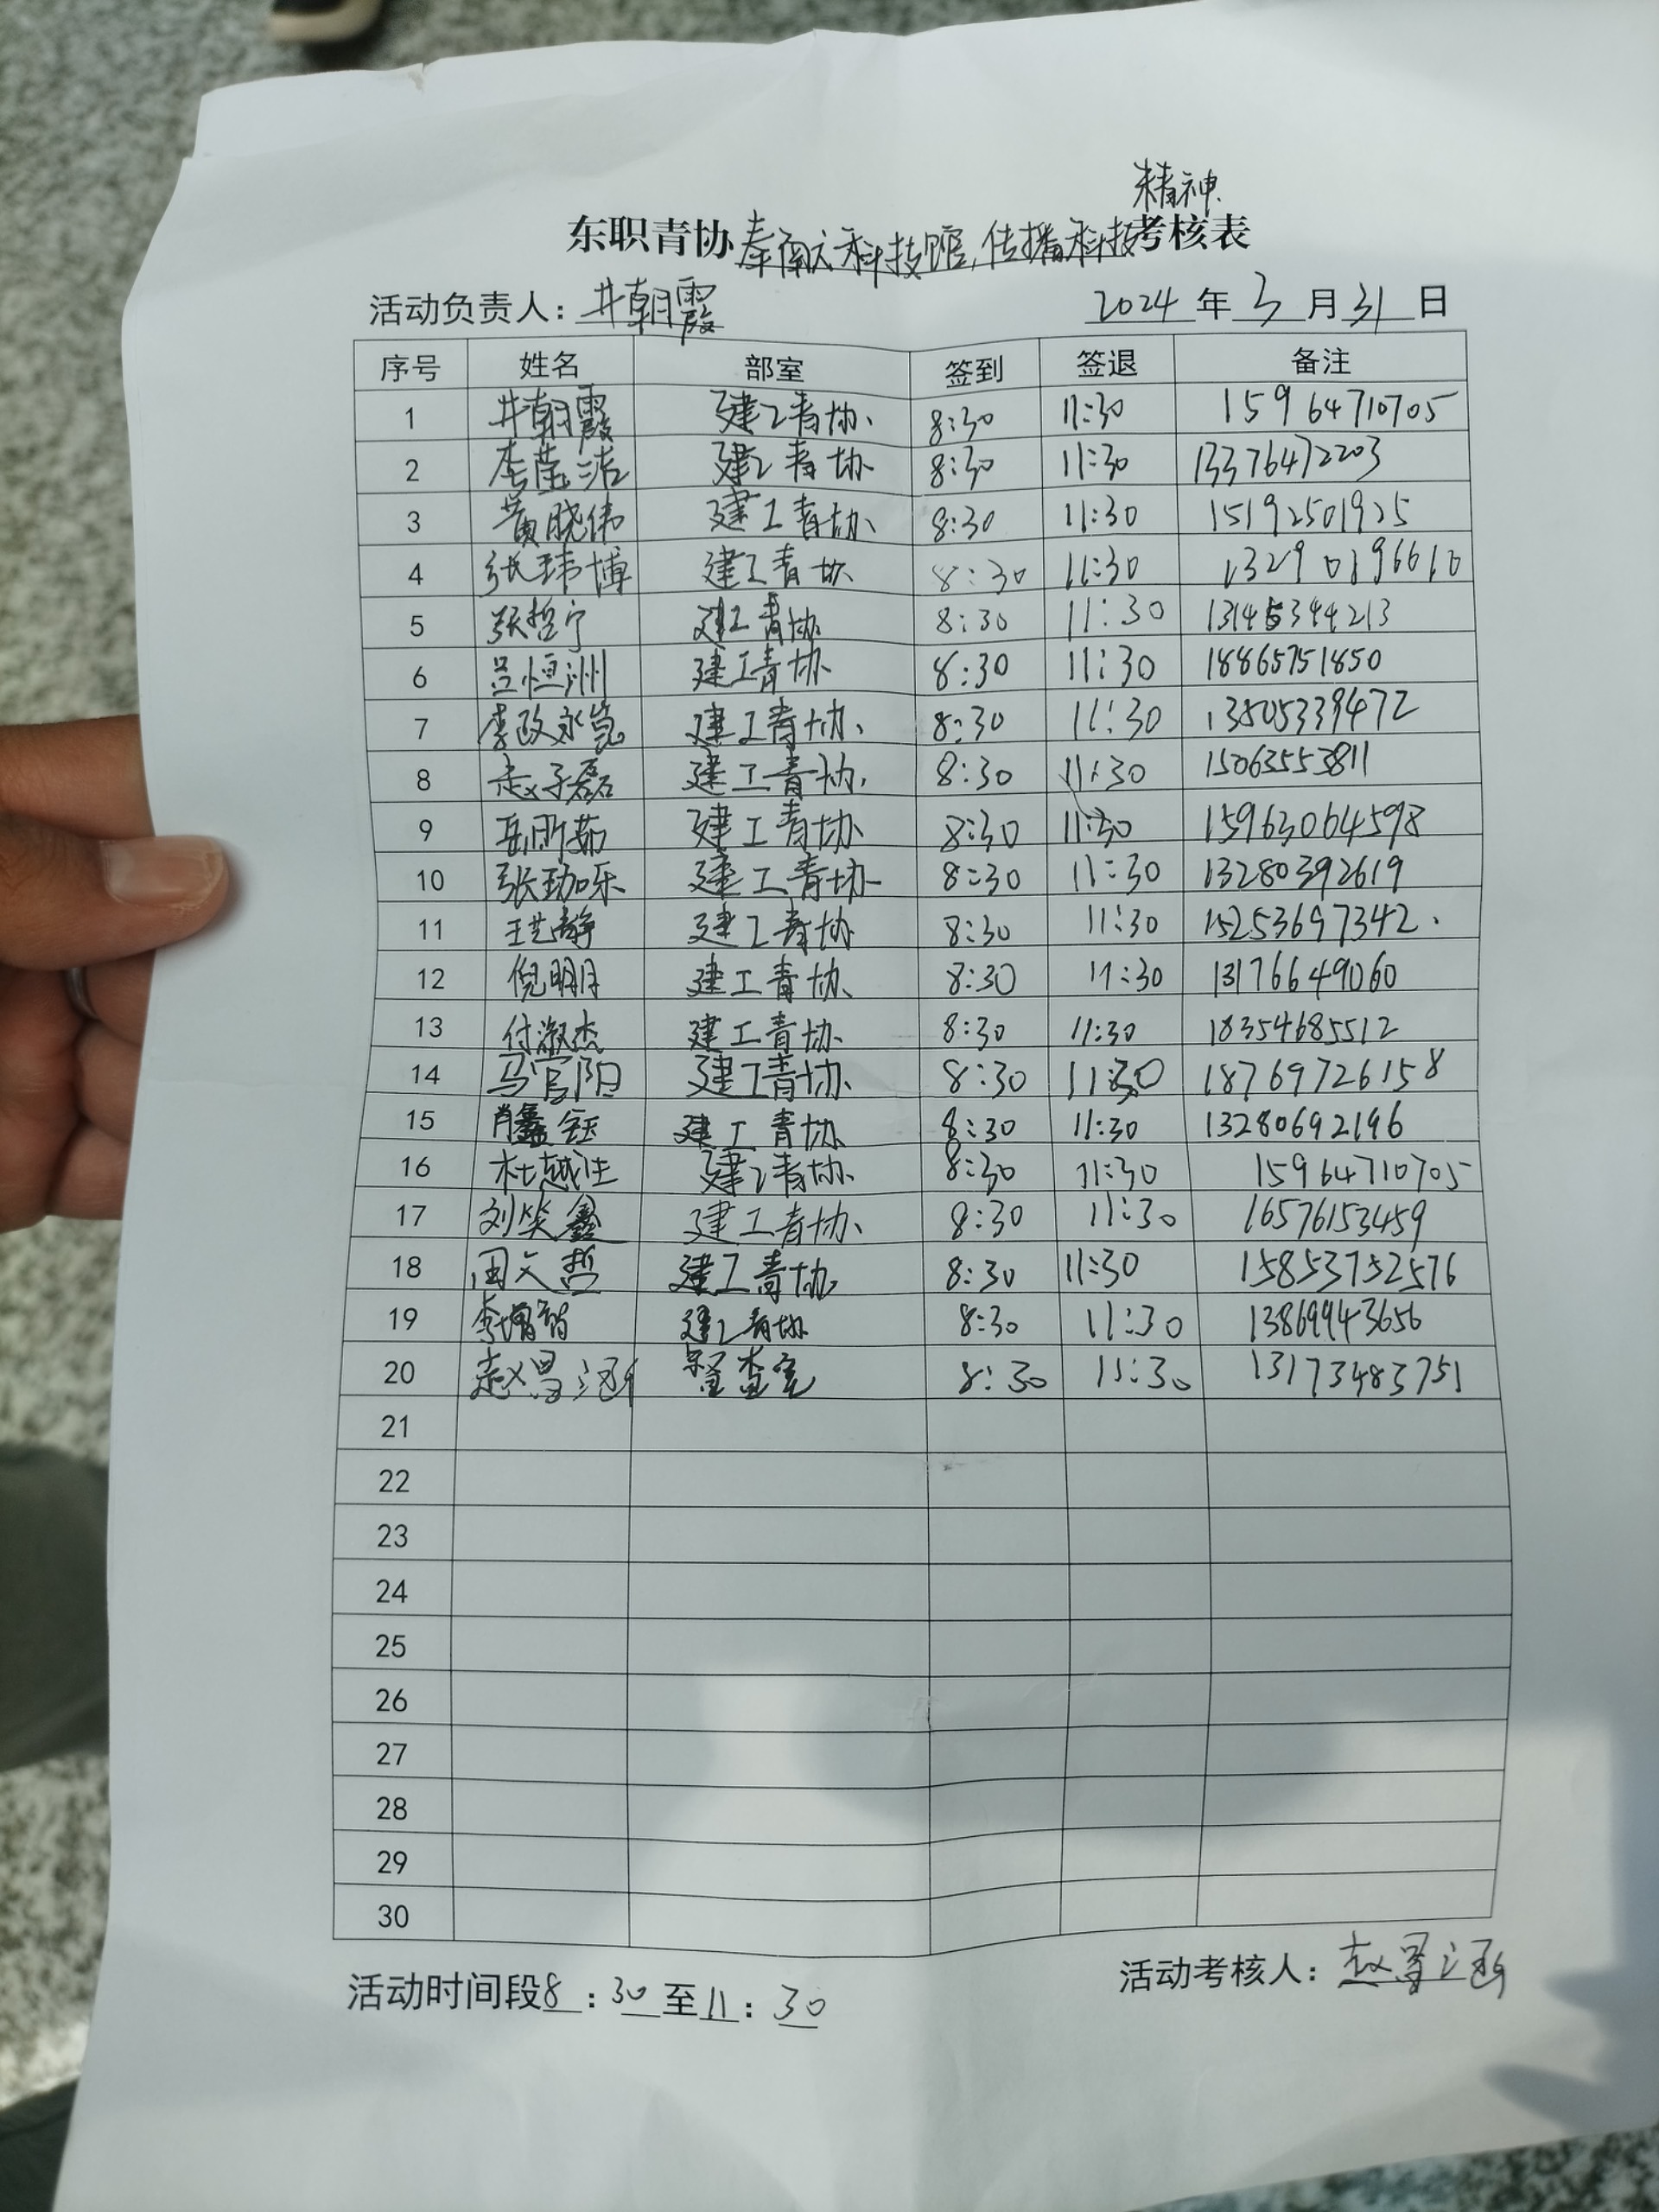 精神
东职青协奉献于科技馆,传播科技考核表
活动负责人:井朝霞 2024年3月31日
序号 姓名 部室 签到 签退 备注
1 井朝霞 建工青协 8:30 11:30 15964710705
2 李莹洁 建工青协 8:30 11:30 13376472203
3 黄晓伟 建工青协 8:30 11:30 15192501925
4 张玮博 建工青协 8:30 11:30 13290196610
5 张哲宁 建工青协 8:30 11:30 13145344213
6 吕恒洲 建工青协 8:30 11:30 18865751850
7 李政永岂 建工青协 8:30 11:30 13505339472
8 赵子磊 建工青协 8:30 11:30 15063553811
9 岳所茹 建工青协 8:30 11:30 15963064598
10 张劲乐 建工青协 8:30 11:30 13280392619
11 王艺静 建工青协 8:30 11:30 15253697342.
12 倪明月 建工青协 8:30 11:30 13176649060
13 付淑杰 建工青协 8:30 11:30 18354685512
14 马官阳 建工青协 8:30 11:30 18769726158
15 肖鑫钰 建工青协 8:30 11:30 13280692196
16 杜越洋 建工青协 8:30 11:30 15964710705
17 刘笑鑫 建工青协 8:30 11:30 16576153459
18 周文哲 建工青协 8:30 11:30 15853752576
19 李增智 建工青协 8:30 11:30 13869943656
20 赵昌涵 督查室 8:30 11:30 13173483751
21
22
23
24
25
26
27
28
29
30
活动时间段8:30至11:30 活动考核人:赵昌涵